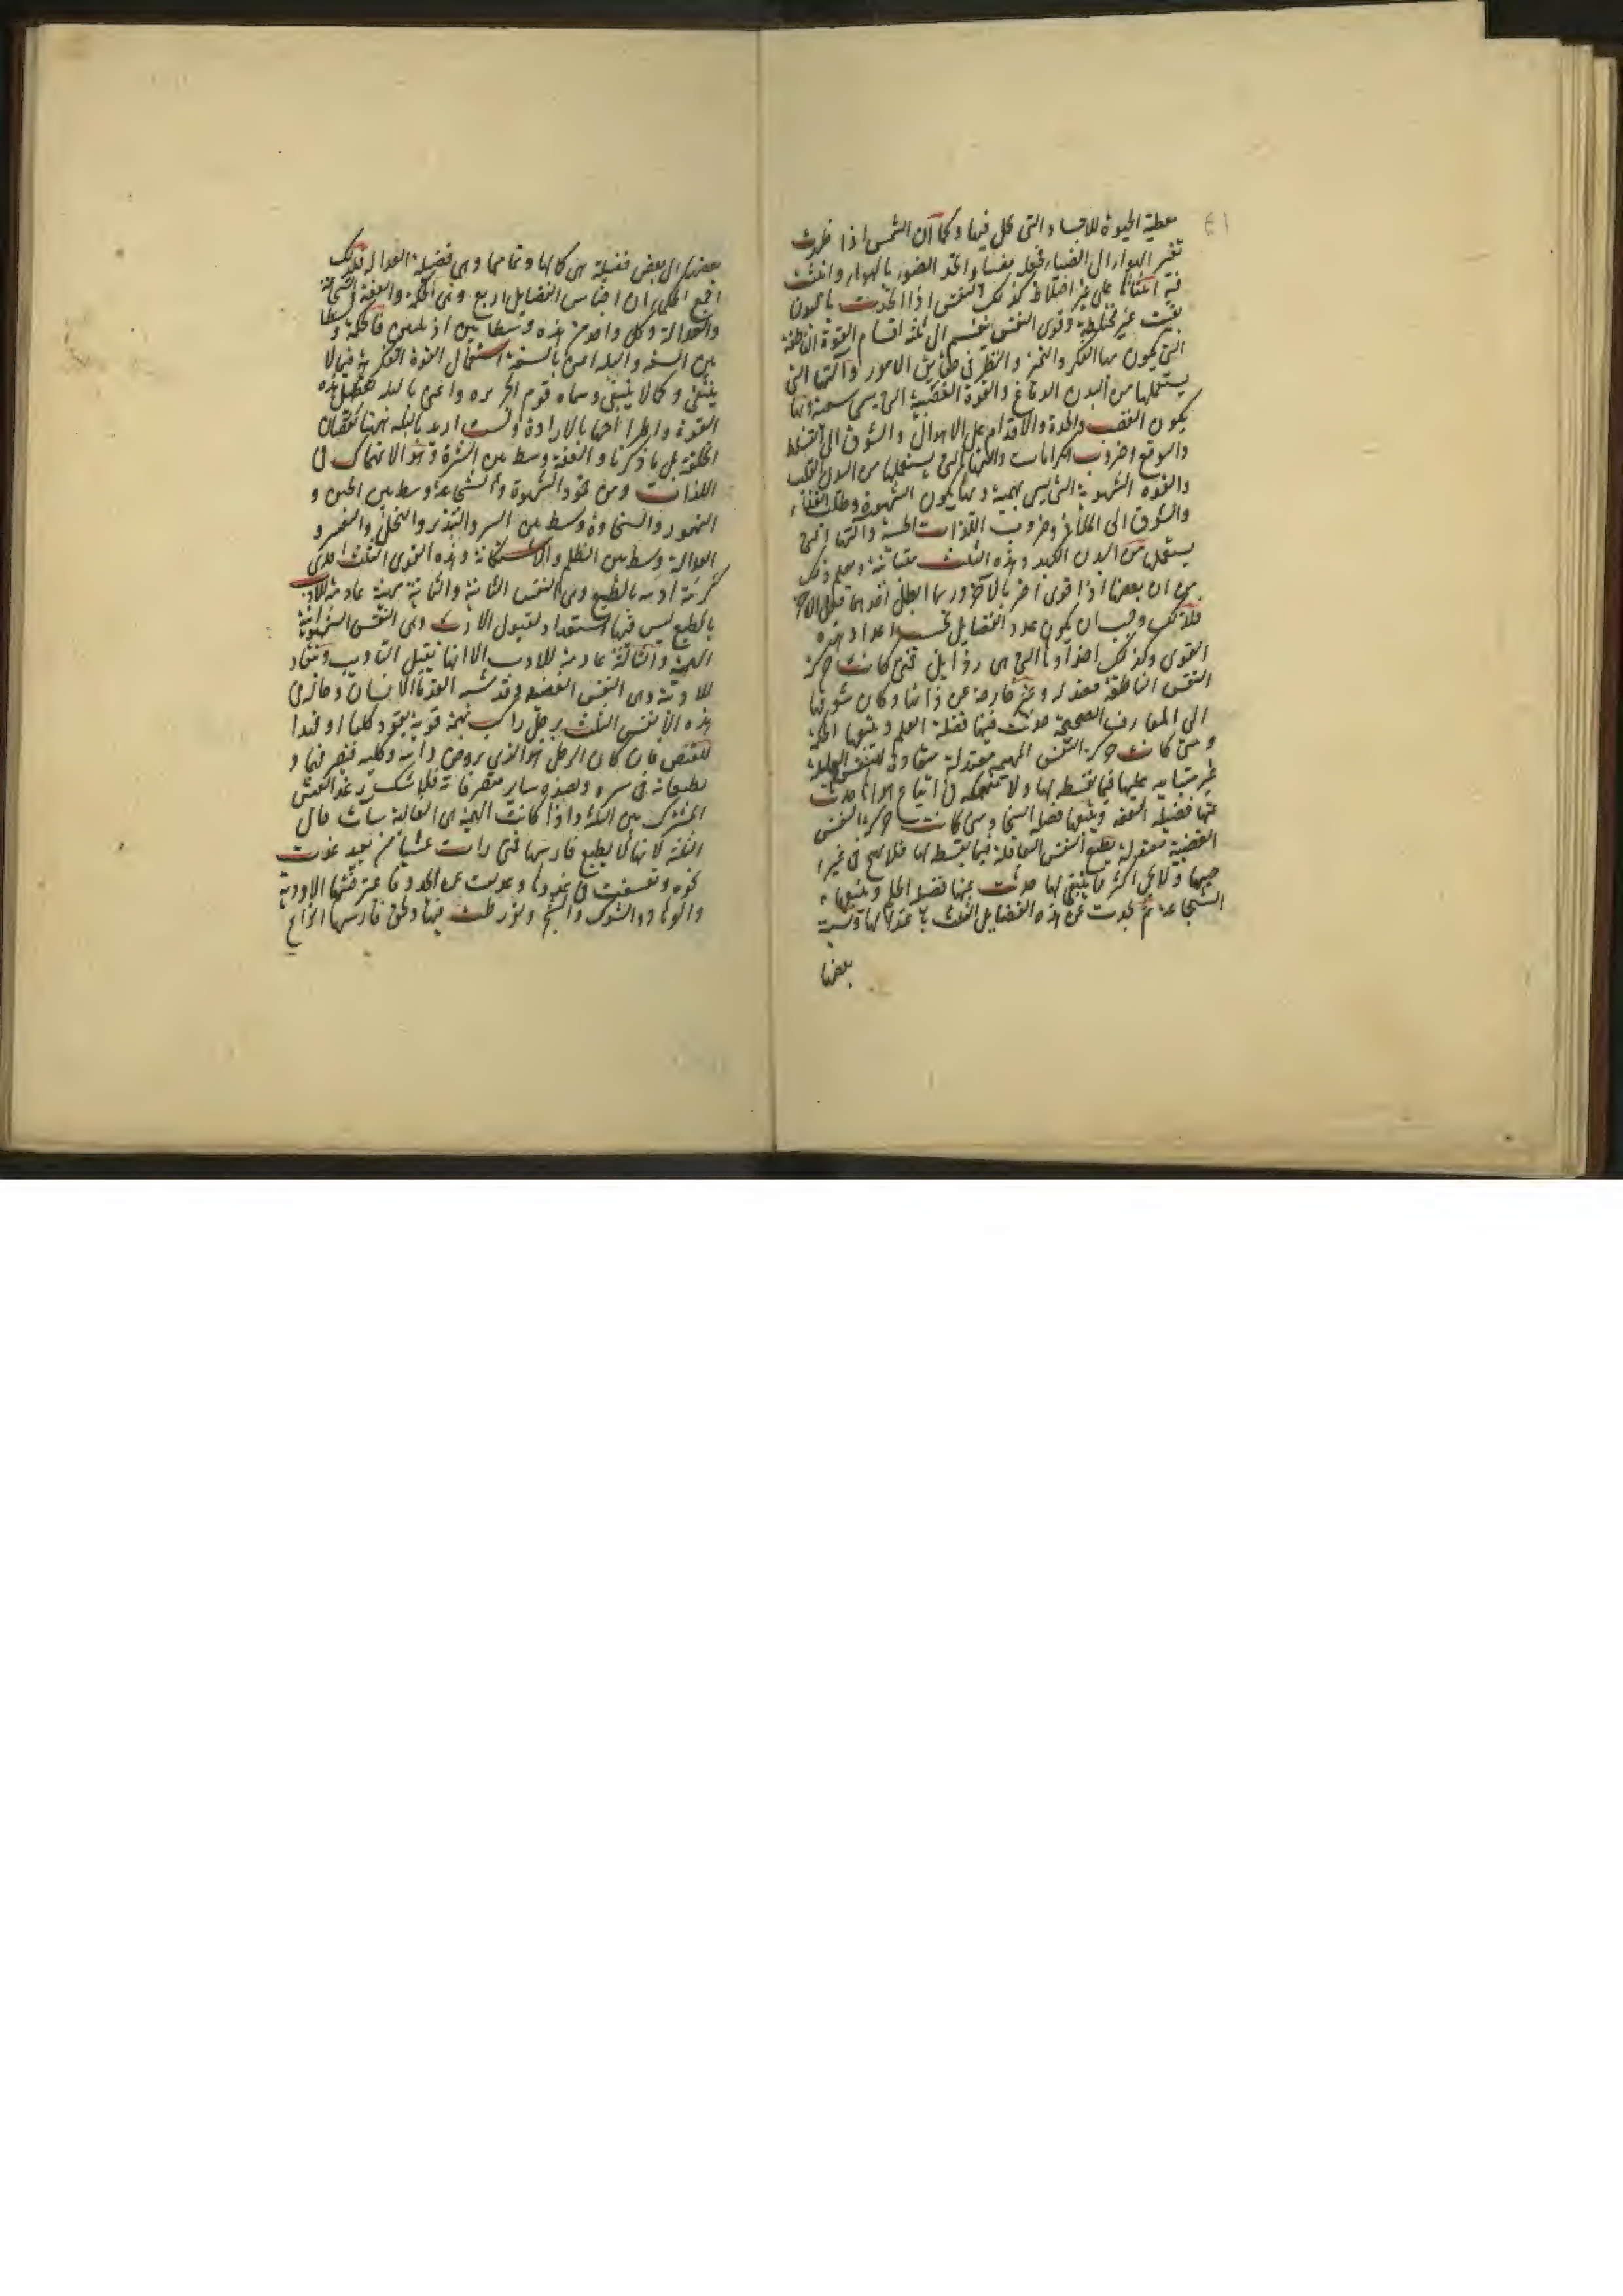 معطية الحيوة للاجساد التى تحل فيها وكما ان الشمس اذا ظهرت
تغير الهواء الى الضياء فتجعله مضيئا واتحد الضوء بالهواء وانبثت
فيه على غير اختلاط كذلك النفس اذا اتحدت بالبدن
بقيت غير مختلطة وقوى النفس ينقسم الى ثلثة اقسام القوة الناطقة
التى يكون بها الفكر والتميز والنظر فى حقايق الامور وآلتها التى
يستعملها من البدن الدماغ والقوة الغضبية التى يسمى سبعية وبها
يكون الغضب والنجدة والاقدام على الاهوال والشوق الى التسلط
والترفع وضروب الكرامات وآلتها التى يستعملها من البدن القلب
والقوة الشهوية التى يسمى بهيمية وبها يكون الشهوة وطلب الغذاء
والشوق الى الملاذ وضروب اللذات الحسية وآلتها التى
يستعملها من البدن الكبد وهذه الثلث متباينة ويعلم ذلك
من ان بعضها اذا قوى اضر بالآخر وربما ابطل احدهما فعل الآخر
فلذلك وجب ان يكون عدد الفضايل بحسب اعداد هذه
القوى وكذلك اضدادها التى هى رذايل فمتى كانت حركة
النفس الناطقة معتدلة وغير خارجة عن ذاتها وكان شوقها
الى المعارف الصحيحة حدثت فيها فضيلة العلم ويتبعها الحكمة
ومتى كانت حركة النفس البهيمية معتدلة منقادة للنفس العاقلة
غير متابية عليها فيما تقسطه لها ولا منهمكة فى اتباع هواها حدثت
عنها فضيلة العفة ويتبعها فضيلة السخا ومتى كانت حركة النفس
الغضبية معتدلة يطيع النفس العاقلة فيما يقسطه لها فلا يهيج فى غير
حينها ولا يحمى اكثر مما ينبغى لها حدثت منها فضيلة الحلم ويتبعها
الشجاعة ثم يحدث عن هذه الفضايل الثلث باعتدالها ونسبة
بعضها
بعضها الى بعض فضيلة هى كمالها وتمامها وهى فضيلة العدالة فلذلك
اجمع الحكماء ان اجناس الفضايل اربع وهى الحكمة والعفة والشجاعة
والعدالة وكل واحد من هذه وسط بين رذيلتين فالحكمة وسط
بين السفه والبله اعنى بالسفه استعمال القوة الفكرية فيما لا
ينبغى وكما لا ينبغى وسماه قوم الجربزه واعنى بالبله تعطيل هذه
القوة واطراحها بالارادة ولست اريد بالبله نهنا نقصان
الخلقة بل ما ذكرنا والعفة وسط بين الشره وهو الانهماك فى
اللذات وبين خمود الشهوة والشجاعة وسط بين الجبن و
التهور والسخاوة وسط بين السرف والتبذير والبخل والتقتير و
العدالة وسط بين الظلم والاستكانة وهذه القوى الثلث احدى
كريمة اديبة بالطبع وهى النفس والثانية مهينة عادمة للادب
بالطبع ليس فيها استعداد لقبول الادب وهى النفس الشهوانية
البهيمية والثالثة عادمة للادب الا انها يقبل التاديب وينقاد
للاديبة وهى النفس الغضبية وقد شبه القدما الانسان وحاله فى
هذه الانفس الثلث برجل راكب بهيمة قوية يقود كلبا او فهدا
للقنص فان كان الرجل هو الذى يروض دابته وكلبه فيصرفهما و
يطيعانه فى سيره وصيده وساير تصرفاته فلا شك رغد العيش
المشترك بين الثلثة واذا كانت البهيمة هى الغالبة ساءت حال
الثلثة لانها لا يطيع فارسها فمتى رات عشبا من بعيد عدت
نحوه وتعسفت فى عدوها وعدلت عن الجدد فاعترضتها الاودية
والوهاد والشوك والشجر وتورطت فيها ولحق فارسها انواع